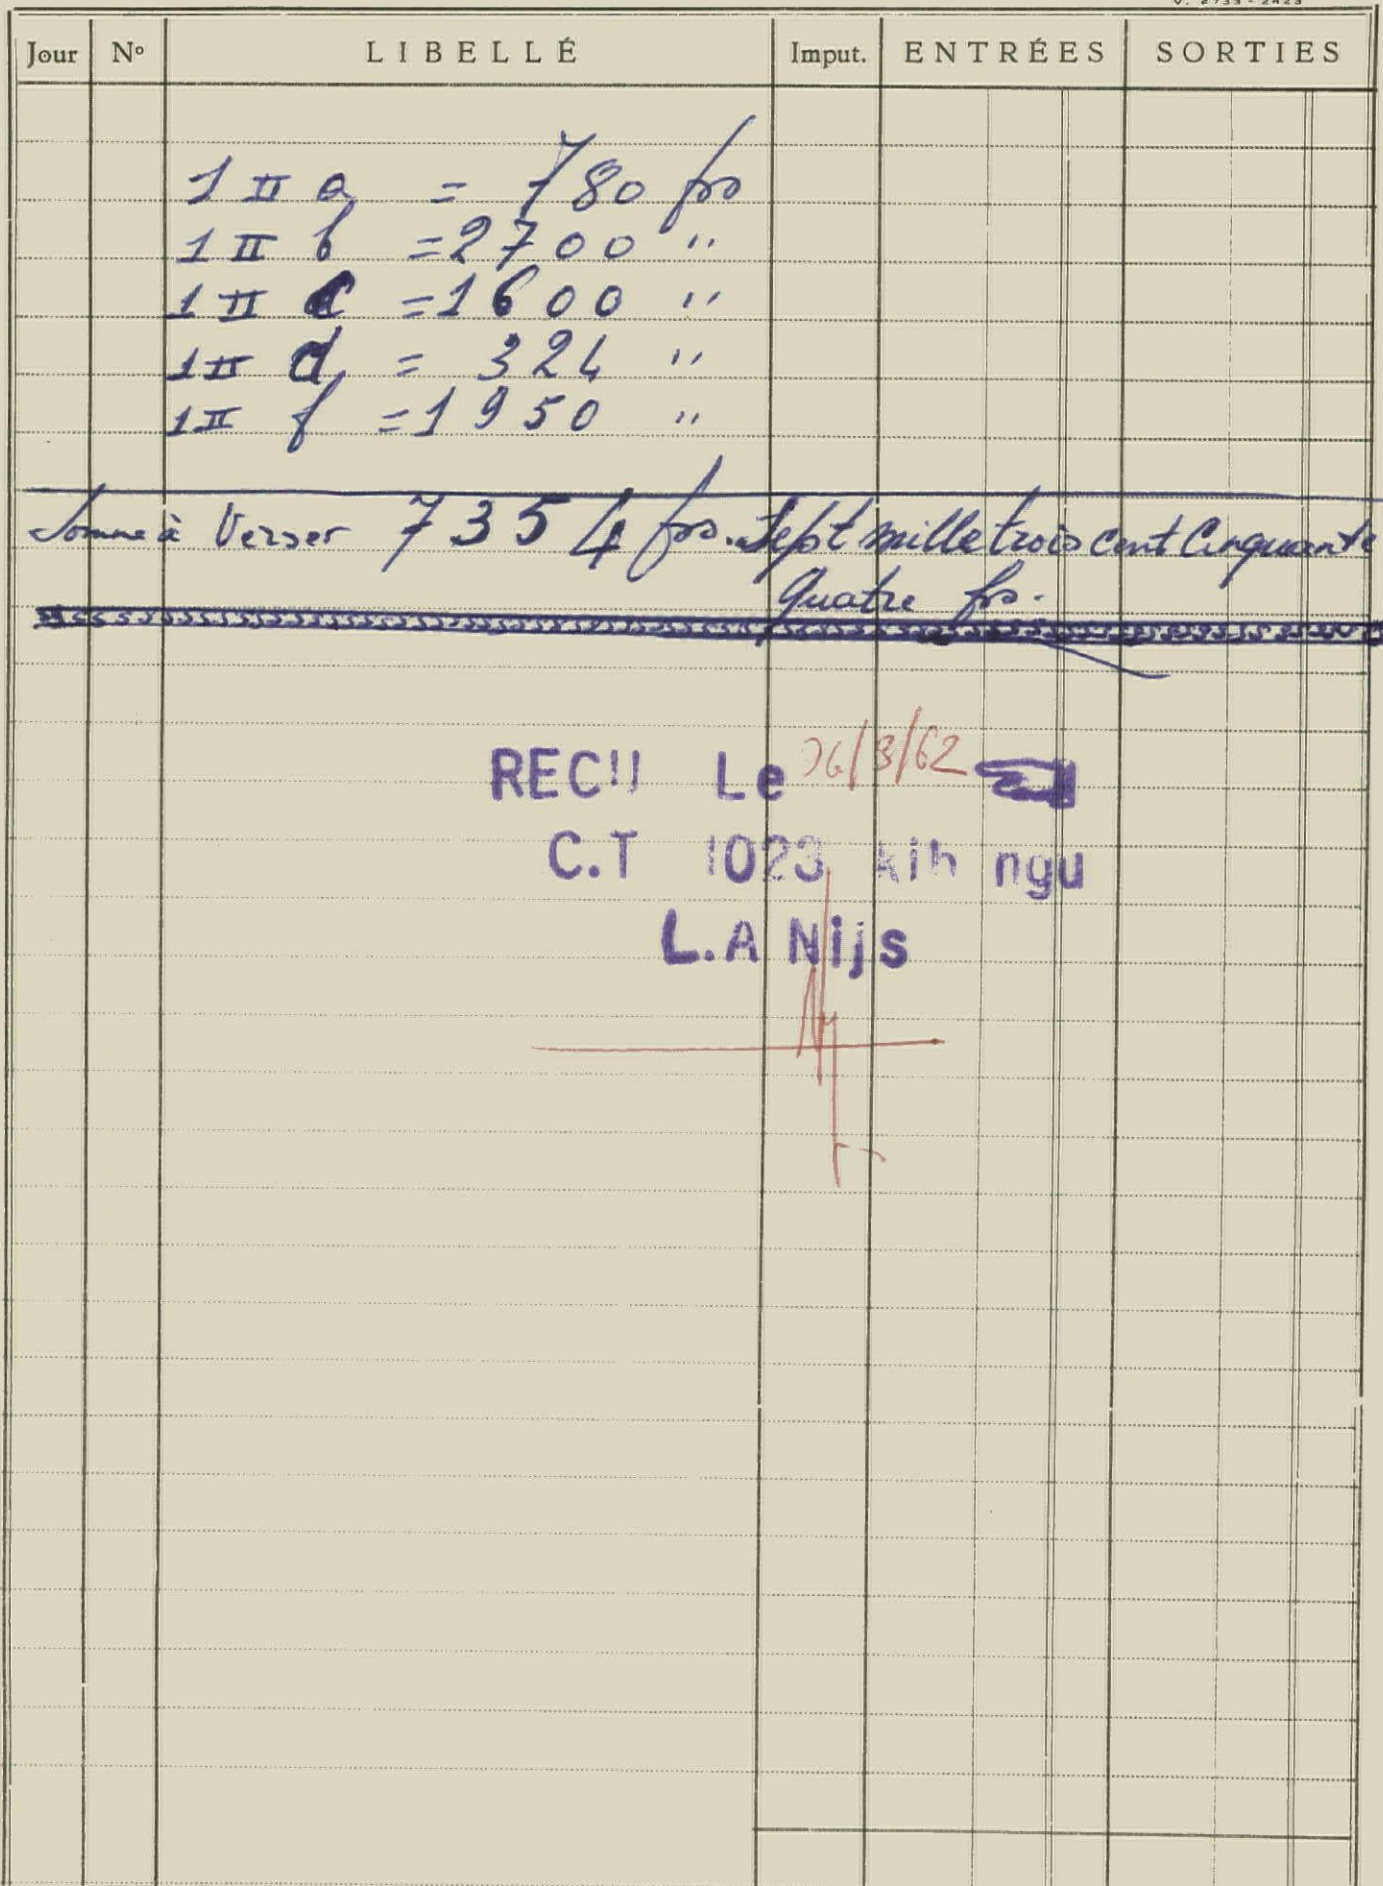 Jour N° LIBELLÉ Imput. ENTRÉES SORTIES
1 II a = 780 frs
1 II b = 2700 "
1 II c = 1600 "
1 II d = 324 "
1 II f = 1950 "
Somme à Verser 7354 frs. Sept mille trois cent Cinquante
Quatre frs.
RECU Le /3/62
C.T 1023 ngu
L.A Nijs